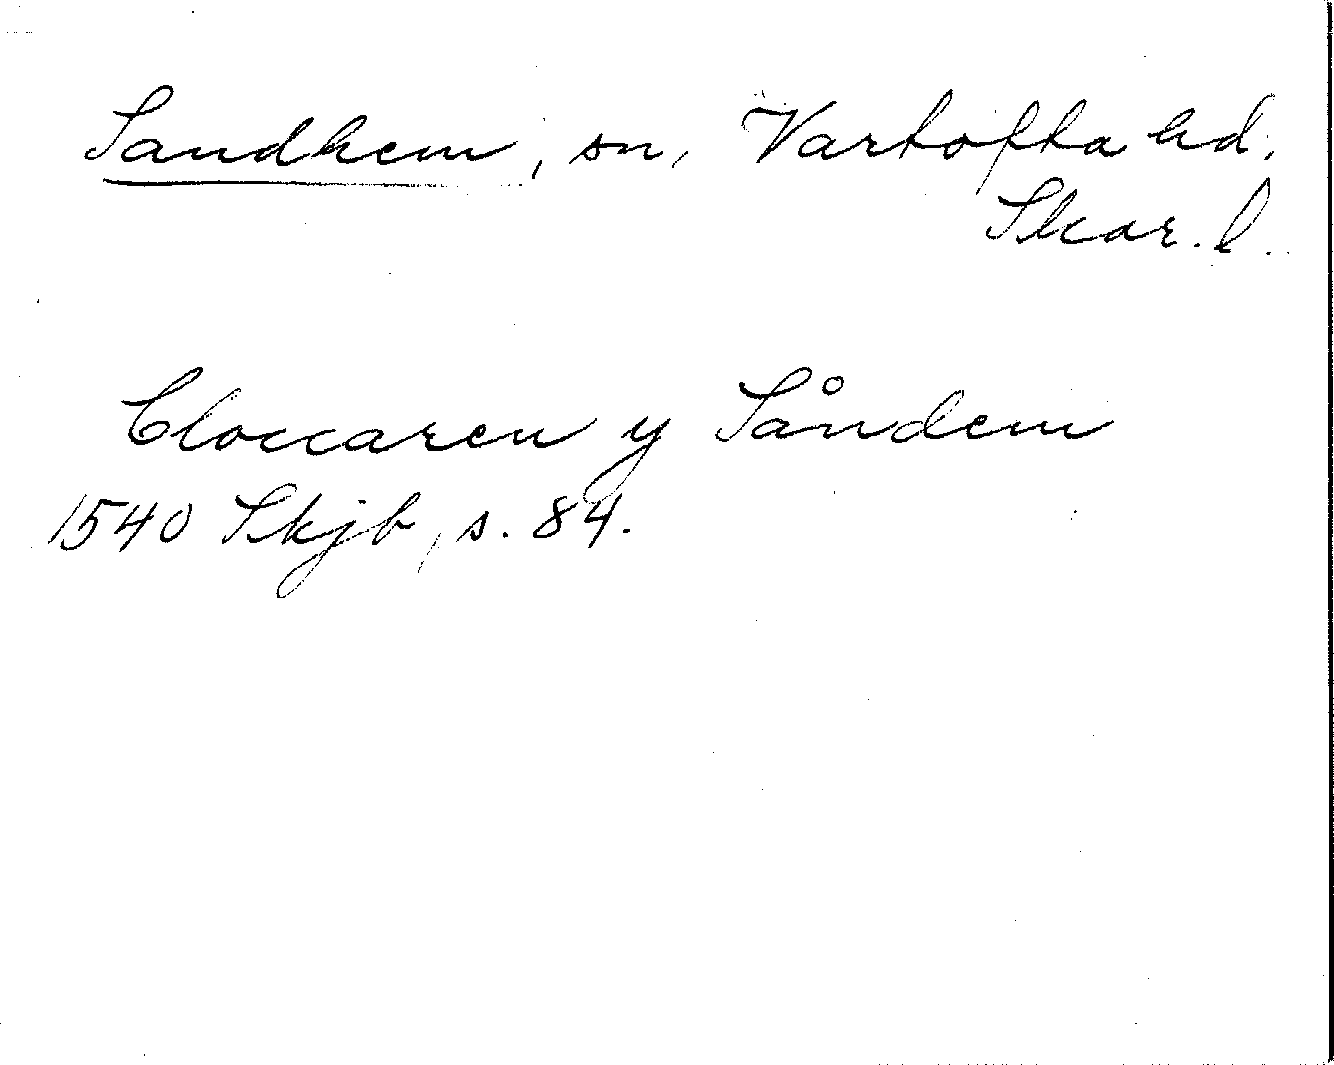 Sandhem, sn, Vartofta hd,
Skar. l.
Cloccaren y Såndem
1540 Skjb, s. 84.